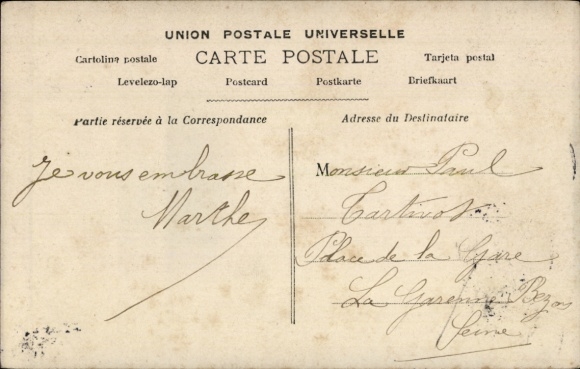 UNION POSTALE UNIVERSELLE
Cartolina postale CARTE POSTALE Tarjeta postal
Levelezo-lap Postcard Postkarte Briefkaart
Partie réservée à la Correspondance
Adresse du Destinataire
Je vous embrasse
Marthe
Monsieur Paul
Tartivot
Place de la Gare
La Garenne Bezons
Seine